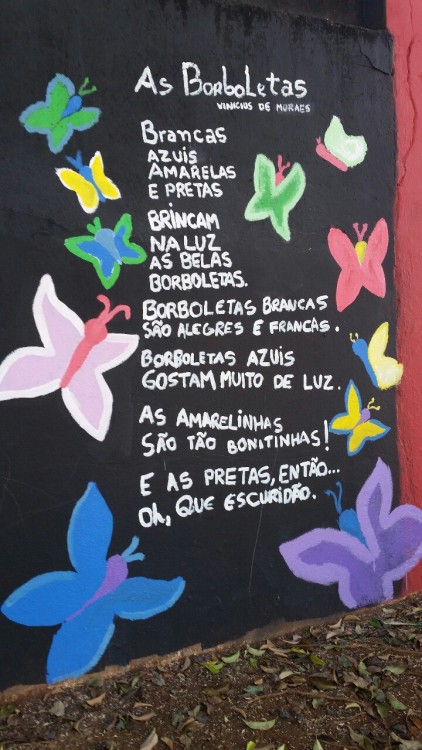 As BorboLetas
VINICIUS DE MORAES
Brancas
AZUIS
AMARELAS
E PRETAS
BRINCAM
NA LUZ
AS BELAS
BORBOLETAS.
BORBOLETAS BRANCAS
SÃO ALEGRES E FRANCAS.
BORBOLETAS AZUIS
GOSTAM MUITO DE LUZ.
AS AMARELINHAS
SÃO TÃO BONITINHAS!
E AS PRETAS, ENTÃO...
Oh, QUE ESCURIDÃO.